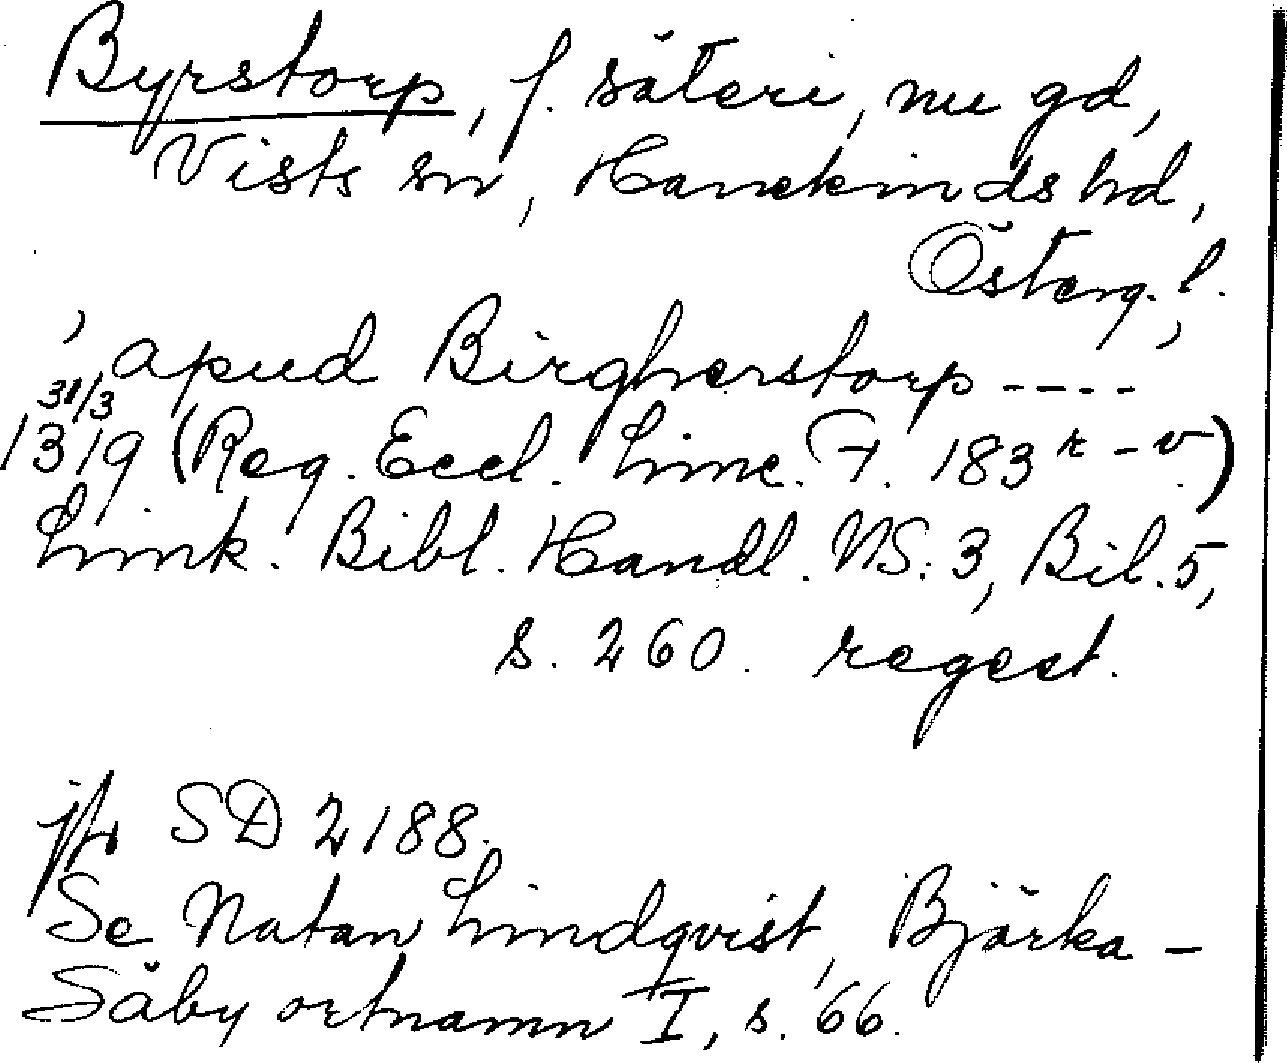 Byrstorp, f. säteri, nu gd,
Vists sn, Hanekinds hd,
Österg. l.
, apud Birgherstorp ----
31/3
1319 (Reg. Eccl. Linc. F. 183 r - v.)
Link. Bibl. Handl. NS: 3, Bil. 5,
s. 260. regest.
jfr SD 2188.
Se Natan Lindqvist, Bjärka-
Säby ortnamn I, s. 66.